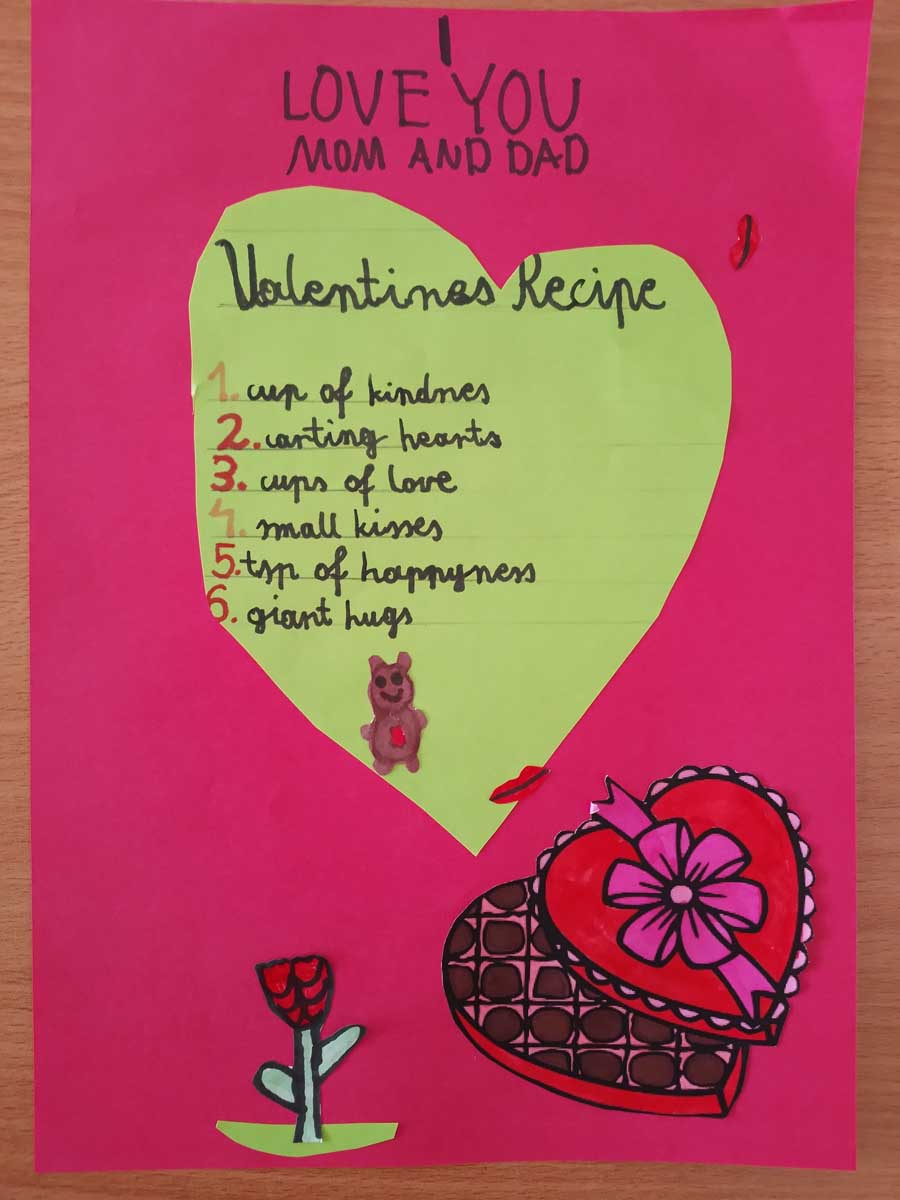 I
LOVE YOU
MOM AND DAD
Valentines Recipe
1. cup of kindnes
2. carting hearts
3. cups of love
4. small kisses
5. tsp of happyness
6. giant hugs